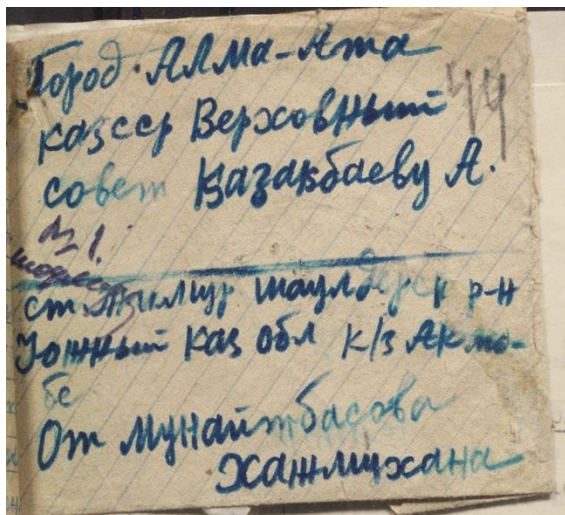 Город. Алма-Ата
казсср Верховный 44
совет Казакбаеву А.
ст. Тимур шаулдерск р-н
Южный каз обл к/з Акто-
бе
От Мунайтбасова
Хажмухана